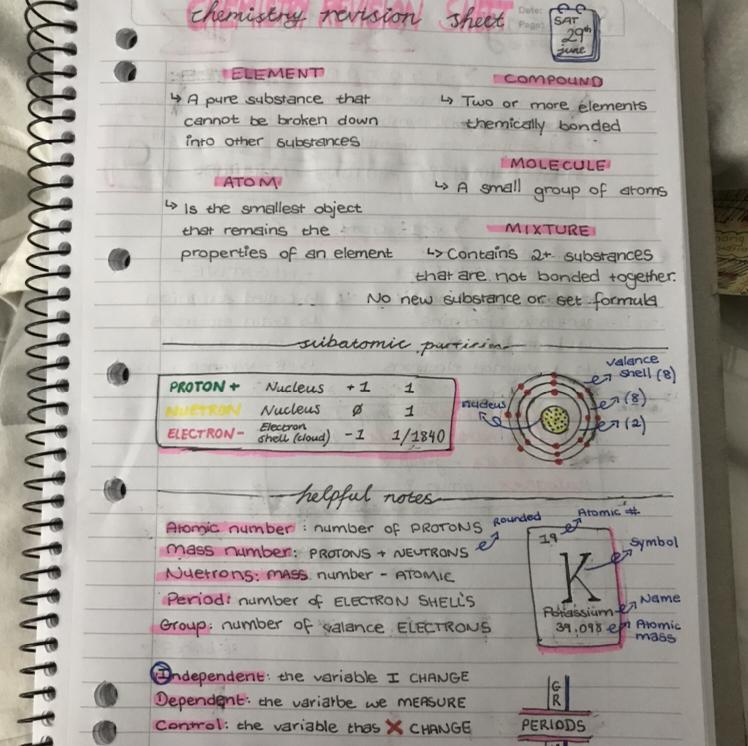 chemistry revision sheet
Date:
Page:
SAT
29th
june
ELEMENT
↳ A pure substance that
cannot be broken down
into other substances
COMPOUND
↳ Two or more elements
chemically bonded
MOLECULE
↳ A small group of atoms
ATOM
↳ Is the smallest object
that remains the
properties of an element
MIXTURE
↳ Contains 2+ substances
that are not bonded together.
No new substance or set formula
subatomic
PROTON + Nucleus +1 1
NUETRON Nucleus ø 1
ELECTRON - Electron shell (cloud) -1 1/1840
nucleus
valance
shell (8)
(8)
(2)
helpful notes
Atomic number: number of PROTONS
Mass number: PROTONS + NEUTRONS
Rounded
Nuetrons: MASS number - ATOMIC
Period: number of ELECTRON SHELL'S
Group: number of valance ELECTRONS
Atomic #
19
K
Symbol
Potassium
Name
39.098
Atomic
mass
Independent: the variable I CHANGE
Dependent: the variarbe we MEASURE
Control: the variable thas X CHANGE
GR
PERIODS